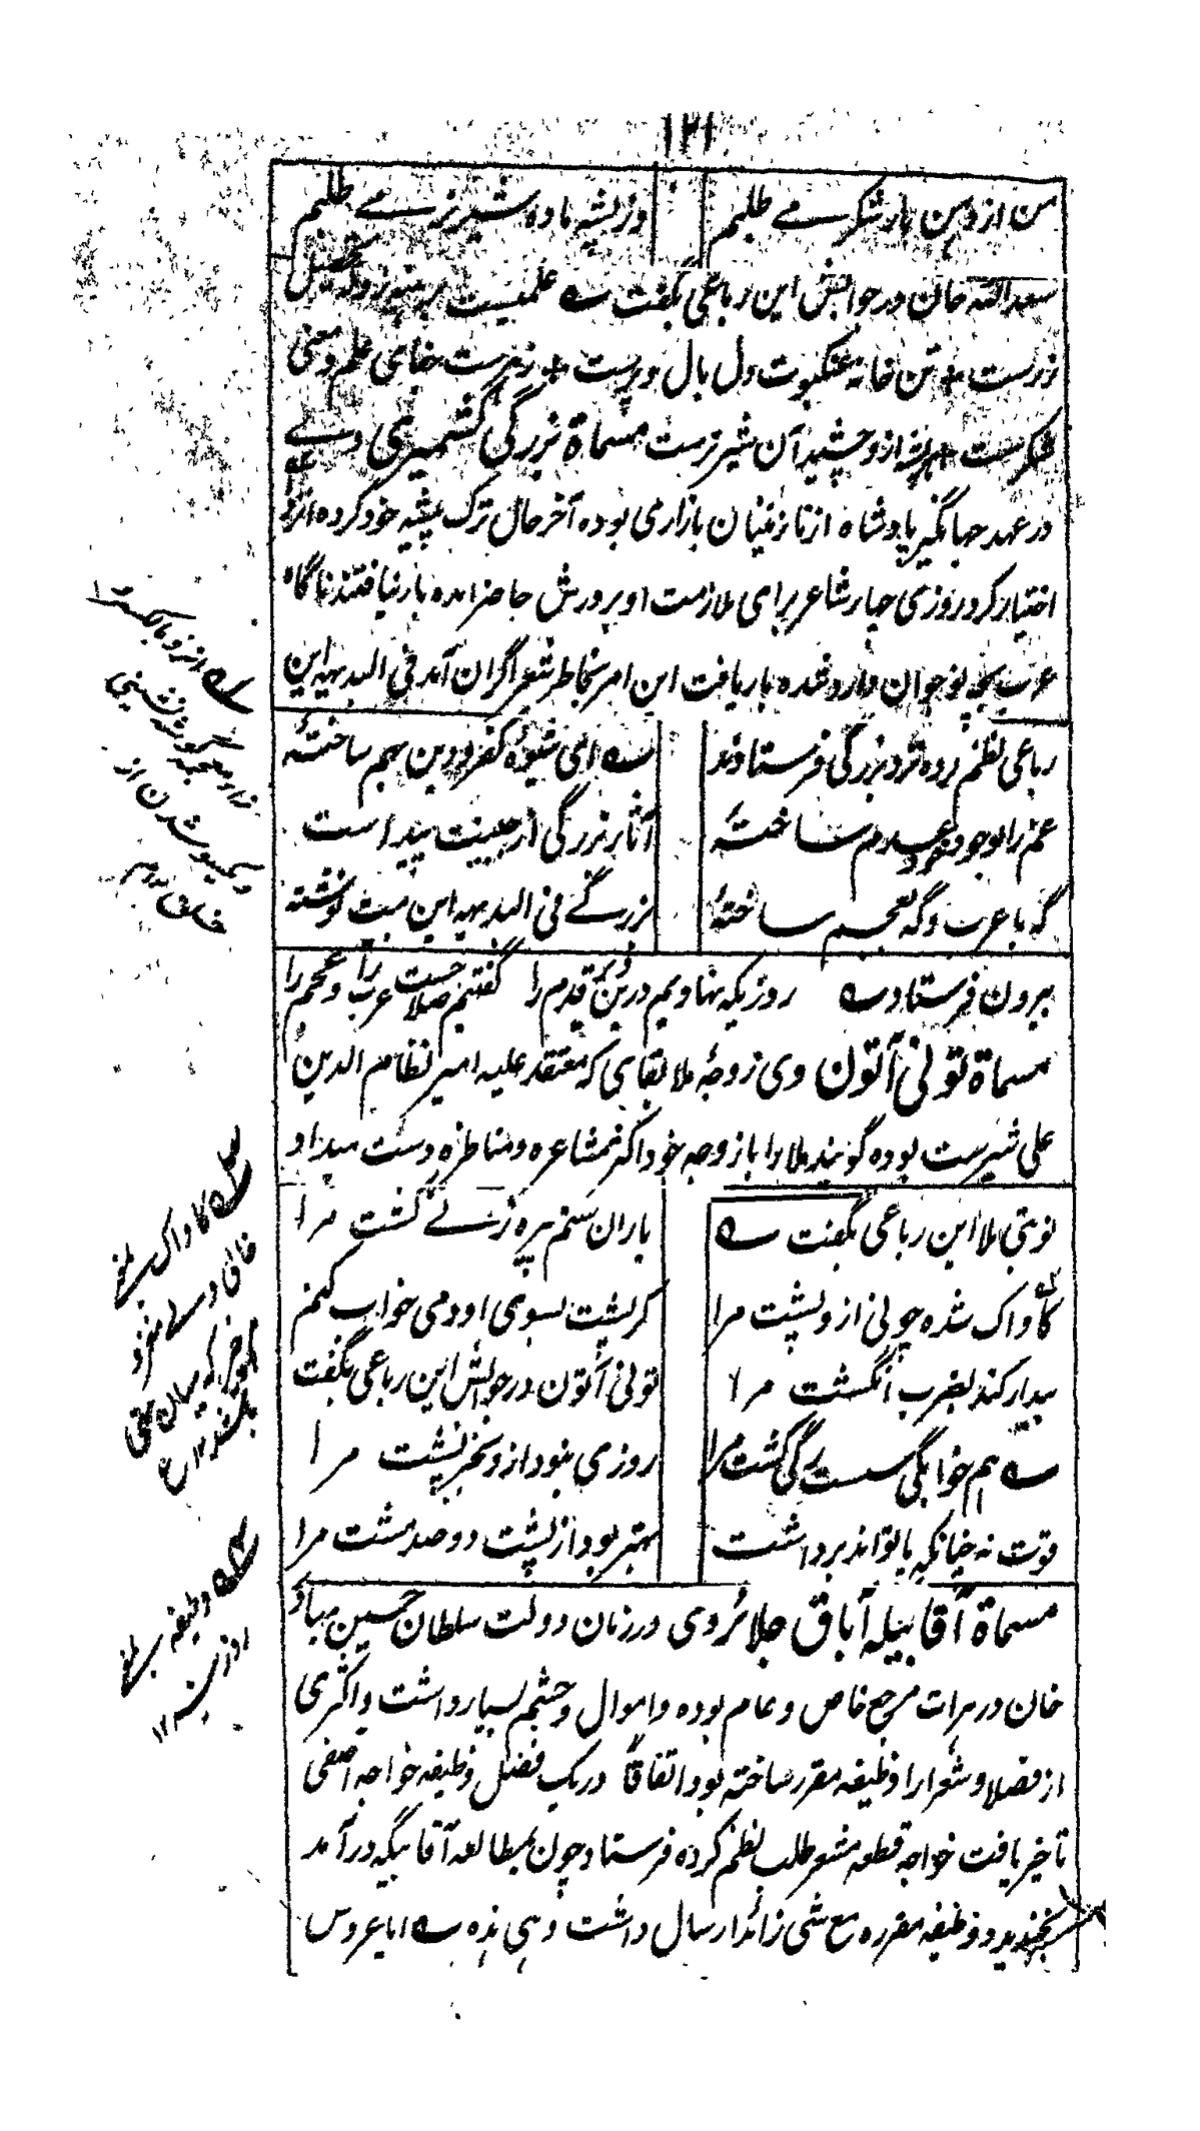 ۱۲۱
من از دهن یار شکر مے طلبم وز بیشه ماده شیر نر مے طلبم
سعدالله خان در جوابش این رباعی بگفت ے علمیست برهنه رو که تحصیل
زرست + تن خانه عنکبوت دل بال و پرست + زهرست جفای علم و معنی
شکرست + هر پشه ازو چشید آن شیر نرست مسماة بزرگی کشمیری وے
در عهد جهانگیر پادشاه از نازنینان بازاری بوده آخر حال ترک پیشه خود کرده انزوا
اختیار کرد روزی چار شاعر برای ملازمت او بر درش حاضر آمده بار نیافتند ناگاه
عرب بچه نوجوان وارد شده بار یافت این امر بخاطر شعرا گران آمد فی البدیهه این
رباعی نظم نموده نزد بزرگی فرستادند ے ای شیوه کفر و دین بهم ساختهٔ
غم را بوجود خود عدم ساختهٔ آثار بزرگی از جبینت پیداست
گه با عرب و گه بعجم ساختهٔ بزرگے فی البدیهه این بیت نوشته
بیرون فرستاد ے روزیکه نهادیم درین دیر قدم را گفتیم صلاحست عرب را و عجم را
مسماة تونی آتون وی زوجهٔ ملا بقای که معتقد علیه امیر نظام الدین
علی شیرست بوده گویند ملا را با زوجه خود اکثر مشاعره و مناظره دست میداد
نوبتی ملا این رباعی بگفت ے یاران ستم پیره زنے کشت مرا
کاواک شده چو نی ازو پشت مرا گر پشت بسوی او دمی خواب کنم
بیدار کند بضرب انگشت مرا تونی آتون در جوابش این رباعی بگفت
ے هم خوابگی سست رگی کشت مرا روزی نبود ازو بجز پشت مرا
قوت نه چنانکه پا تواند برداشت بهتر بود از پشت دو صد مشت مرا
مسماة آقا بیله آباق جلائر وی در زمان دولت سلطان حسین بهادر
خان در هرات مرجع خاص و عام بوده و اموال و حشم بسیار داشت و اکثری
از فضلا و شعرا را وظیفه مقرر ساخته بود اتفاقاً در یک فصل وظیفه خواجه آصفی
تاخیر یافت خواجه قطعه مشعر طلب نظم کرده فرستاد چون بمطالعه آقا بیگه درآمد
بخندید و وظیفه مقرره مع شی زائد ارسال داشت و هی هذه ے ایا عروس
انزوا بالکسر
گوشه نشینی
و یکسو شدن از
خلق
کاواک
خالی و بے مغز
میان تهی
باشد ۱۲
وظیفه
روزینه ۱۲